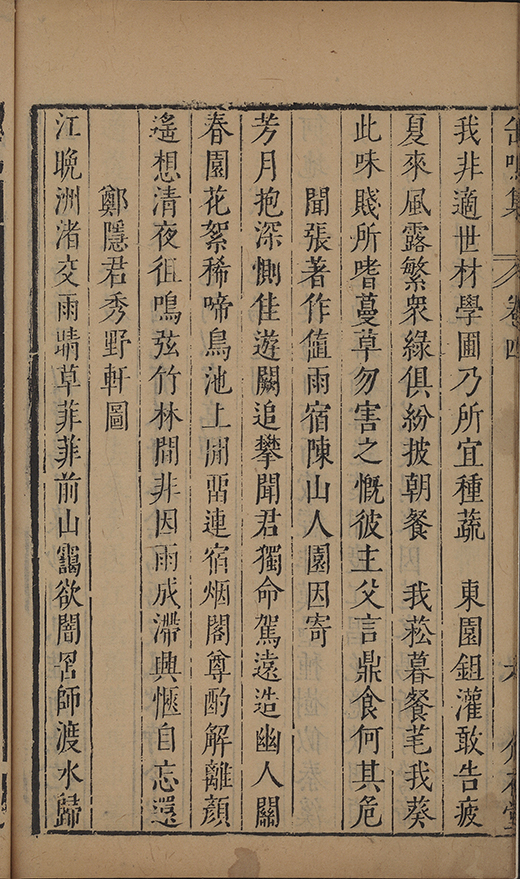 缶鳴集 卷四 六
我非適世材學圃乃所宜種蔬 東園鉏灌敢告疲
夏來風露繁衆綠俱紛披朝餐 我菘暮餐芼我葵
此味賤所嗜蔓草勿害之慨彼主父言鼎食何其危
聞張著作值雨宿陳山人園因寄
芳月抱深惻佳遊闕追攀聞君獨命駕遠造幽人關
春園花絮稀啼鳥池上閒畱連宿烟閣尊酌解離顏
遙想清夜徂鳴弦竹林間非因雨成滯興愜自忘還
鄭隱君秀野軒圖
江晚洲渚交雨晴草菲菲前山靄欲闇罟師渡水歸